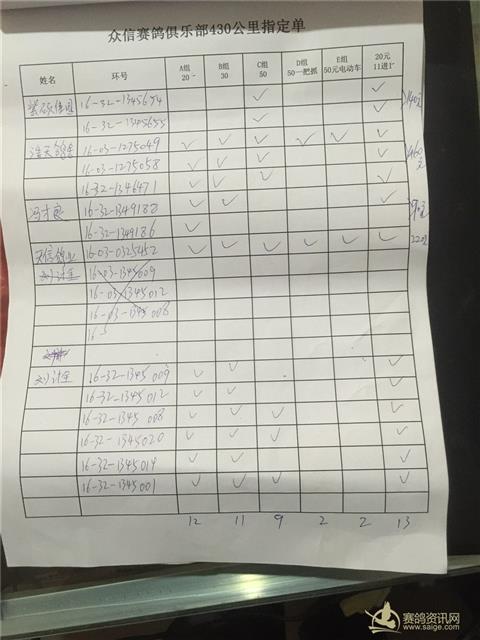 众信赛鸽俱乐部430公里指定单
姓名 环号 A组 20 B组 30 C组 50 D组 50一把抓 E组 50元电动车 20元 11进1
16-32-1345654 ✓ ✓ 140元
16-32-1345655 ✓ ✓
16-03-1275049 ✓ ✓ ✓ ✓ ✓ ✓ 460元
16-03-1275058 ✓ ✓ ✓ ✓
16-32-1346471 ✓ ✓ ✓ ✓
冯才良 16-32-1349188 ✓ ✓ ✓ 90元
16-32-1349186 ✓
天信鸽业 16-03-0325452 ✓ ✓ ✓ ✓ ✓ ✓ 220
16-03-1345009
16-03-1345012
16-03-1345008
16-3
16-32-1345009 ✓ ✓ ✓
16-32-1345012 ✓ ✓ ✓
16-32-1345008 ✓ ✓ ✓ ✓
16-32-1345020 ✓ ✓ ✓ ✓
16-32-1345019 ✓ ✓ ✓
16-32-1345001 ✓ ✓ ✓ ✓
12 11 9 2 2 13
赛鸽资讯网
www.saige.com